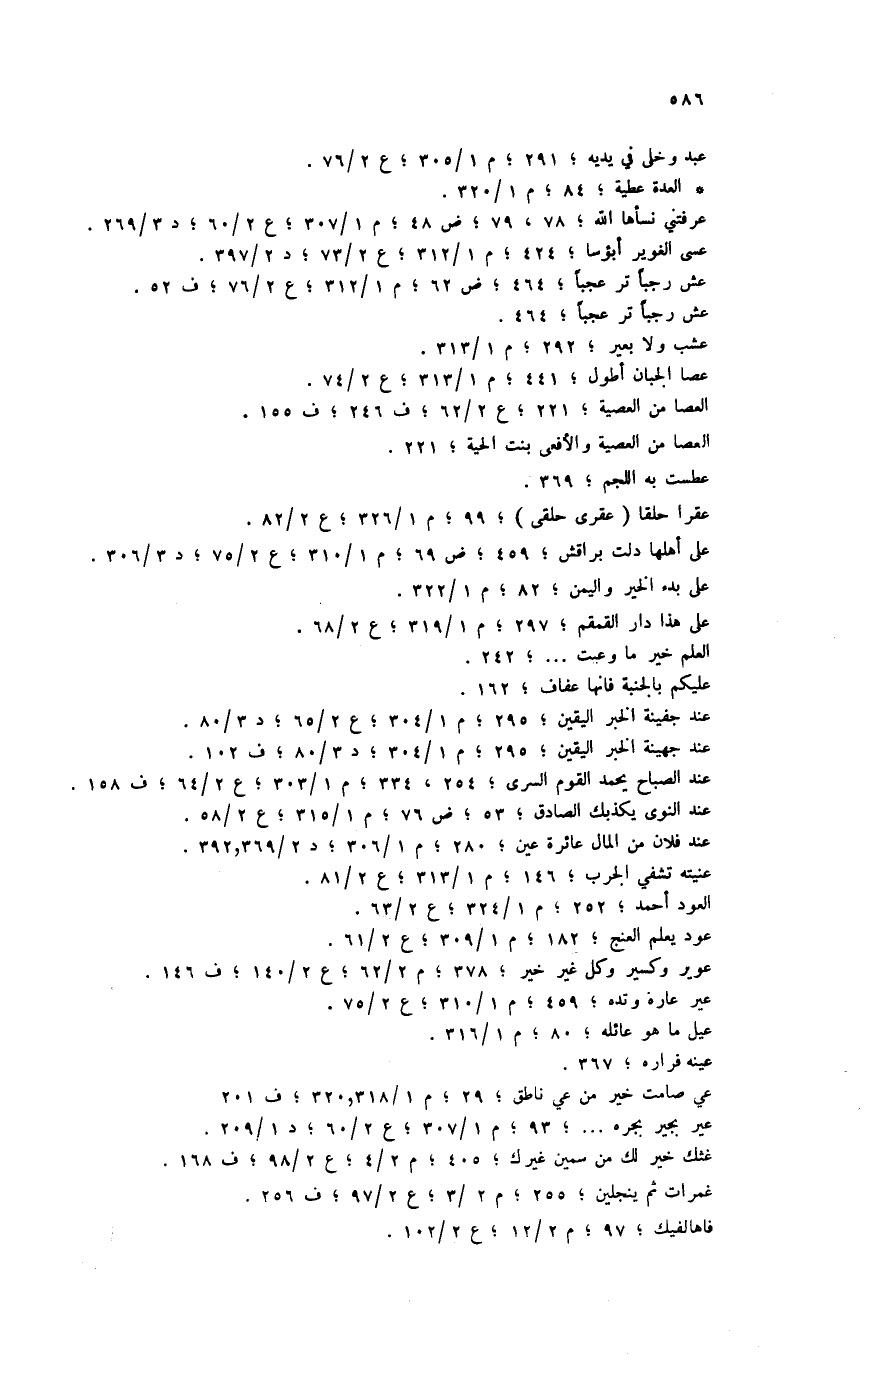 ٥٨٦
عبد وخلى في يديه ؛ ٢٩١ ؛ م ٣٠٥/١ ؛ ع ٧٦/٢ .
* العدة عطية ؛ ٨٤ ؛ م ٣٢٠/١ .
عرفتني نسأها الله ؛ ٧٨ ، ٧٩ ؛ ض ٤٨ ؛ م ٣٠٧/١ ؛ ع ٦٠/٢ ؛ د ٢٦٩/٣ .
عسى الغوير أبؤسا ؛ ٤٢٤ ؛ م ٣١٢/١ ؛ ع ٧٣/٢ ؛ د ٣٩٧/٢ .
عش رجباً تر عجباً ؛ ٤٦٤ ؛ ض ٦٢ ؛ م ٣١٢/١ ؛ ع ٧٦/٢ ؛ ف ٥٢ .
عش رجباً تر عجباً ؛ ٤٦٤ .
عشب ولا بعير ؛ ٢٩٢ ؛ م ٣١٣/١ .
عصا الجبان أطول ؛ ٤٤١ ؛ م ٣١٣/١ ؛ ع ٧٤/٢ .
العصا من العصية ؛ ٢٢١ ؛ ع ٦٢/٢ ؛ ف ٢٤٦ ؛ ف ١٥٥ .
العصا من العصية والأفعى بنت الحية ؛ ٢٢١ .
عطست به اللجم ؛ ٣٦٩ .
عقرا حلقا ( عقرى حلقى ) ؛ ٩٩ ؛ م ٣٢٦/١ ؛ ع ٨٢/٢ .
على أهلها دلت براقش ؛ ٤٥٩ ؛ ض ٦٩ ؛ م ٣١٠/١ ؛ ع ٧٥/٢ ؛ د ٣٠٦/٣ .
على بدء الخير واليمن ؛ ٨٢ ؛ م ٣٢٢/١ .
على هذا دار القمقم ؛ ٢٩٧ ؛ م ٣١٩/١ ؛ ع ٦٨/٢ .
العلم خير ما وعيت ... ؛ ٢٤٢ .
عليكم بالجنبة فانها عفاف ؛ ١٦٢ .
عند جفينة الخبر اليقين ؛ ٢٩٥ ؛ م ٣٠٤/١ ؛ ع ٦٥/٢ ؛ د ٨٠/٣ .
عند جهينة الخبر اليقين ؛ ٢٩٥ ؛ م ٣٠٤/١ ؛ د ٨٠/٣ ؛ ف ١٠٢ .
عند الصباح يحمد القوم السرى ؛ ٢٥٤ ، ٣٣٤ ؛ م ٣٠٣/١ ؛ ع ٦٤/٢ ؛ ف ١٥٨ .
عند النوى يكذبك الصادق ؛ ٥٣ ؛ ض ٧٦ ؛ م ٣١٥/١ ؛ ع ٥٨/٢ .
عند فلان من المال عائرة عين ؛ ٢٨٠ ؛ م ٣٠٦/١ ؛ د ٣٩٢,٣٦٩/٢ .
عنيته تشفي الجرب ؛ ١٤٦ ؛ م ٣١٣/١ ؛ ع ٨١/٢ .
العود أحمد ؛ ٢٥٢ ؛ م ٣٢٤/١ ؛ ع ٦٣/٢ .
عود يعلم العنج ؛ ١٨٢ ؛ م ٣٠٩/١ ؛ ع ٦١/٢ .
عوير وكسير وكل غير خير ؛ ٣٧٨ ؛ م ٦٢/٢ ؛ ع ١٤٠/٢ ؛ ف ١٤٦ .
عير عاره وتده ؛ ٤٥٩ ؛ م ٣١٠/١ ؛ ع ٧٥/٢ .
عيل ما هو عائله ؛ ٨٠ ؛ م ٣١٦/١ .
عينه فراره ؛ ٣٦٧ .
عي صامت خير من عي ناطق ؛ ٢٩ ؛ م ٣٢٠,٣١٨/١ ؛ ف ٢٠١
عير بجير بجره ... ؛ ٩٣ ؛ م ٣٠٧/١ ؛ ع ٦٠/٢ ؛ د ٢٠٩/١ .
غثك خير لك من سمين غيرك ؛ ٤٠٥ ؛ م ٤/٢ ؛ ع ٩٨/٢ ؛ ف ١٦٨ .
غمرات ثم ينجلين ؛ ٢٥٥ ؛ م ٣/ ٢ ؛ ع ٩٧/٢ ؛ ف ٢٥٦ .
فاهالفيك ؛ ٩٧ ؛ م ١٢/٢ ؛ ع ١٠٢/٢ .